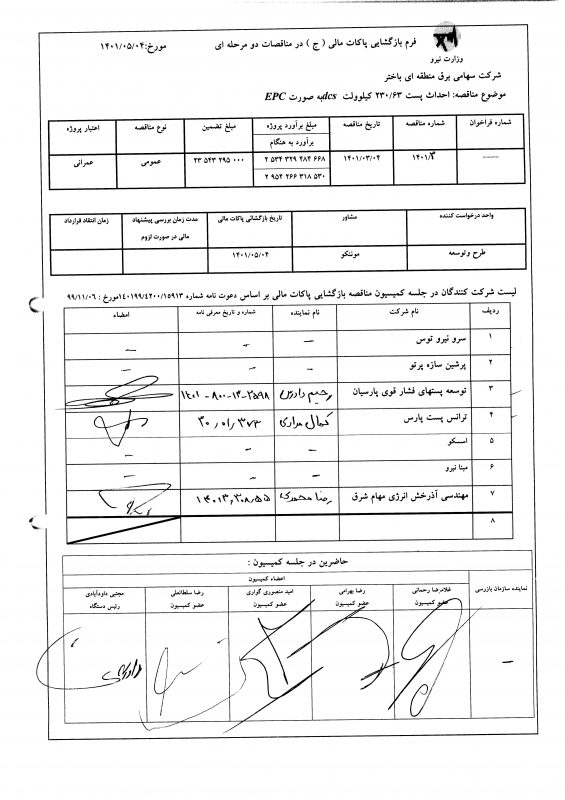 فرم بازگشایی پاکات مالی ( ج ) در مناقصات دو مرحله ای
مورخ:۱۴۰۱/۰۵/۰۴
وزارت نیرو
شرکت سهامی برق منطقه ای باختر
موضوع مناقصه: احداث پست ۲۳۰/۶۳ کیلوولت dcsبه صورت EPC
شماره فراخوان شماره مناقصه تاریخ مناقصه مبلغ برآورد پروژه مبلغ تضمین نوع مناقصه اعتبار پروژه
برآورد به هنگام
----- ۱۴۰۱/۳ ۱۴۰۱/۰۳/۰۴ ۲ ۵۳۴ ۳۲۹ ۴۸۴ ۶۶۸ ۲۳ ۵۴۳ ۲۹۵ ۰۰۰ عمومی عمرانی
۲ ۹۵۴ ۲۶۶ ۳۱۸ ۵۳۰
واحد درخواست کننده مشاور تاریخ بازگشائی پاکات مالی مدت زمان بررسی پیشنهاد مالی در صورت لزوم زمان انتقاد قرارداد
طرح وتوسعه موننکو ۱۴۰۱/۰۵/۰۴
لیست شرکت کنندگان در جلسه کمیسیون مناقصه بازگشایی پاکات مالی بر اساس دعوت نامه شماره ۱۴۰۱۹۹/۴۲۰۰/۱۵۹۱۳مورخ : ۹۹/۱۱/۰۶
ردیف نام شرکت نام نماینده شماره و تاریخ معرفی نامه امضاء
۱ سرو نیرو توس – – –
۲ پرشین سازه پرتو – – –
۳ توسعه پستهای فشار قوی پارسیان رحیم دادرس ۱۴۰۱-۸۰۰-۱۴-۲۵۹۸
۴ ترانس پست پارس کمال مرادی
۵ امسکو – – –
۶ مپنا نیرو – – –
۷ مهندسی آذرخش انرژی مهام شرق رضا محمدی
۸
حاضرین در جلسه کمیسیون :
اعضاء کمیسیون
نماینده سازمان بازرسی غلامرضا رحمانی رضا بهرامی امید منصوری گواری رضا سلطانعلی مجتبی داودآبادی
عضو کمیسیون عضو کمیسیون عضو کمیسیون عضو کمیسیون رئیس دستگاه
–